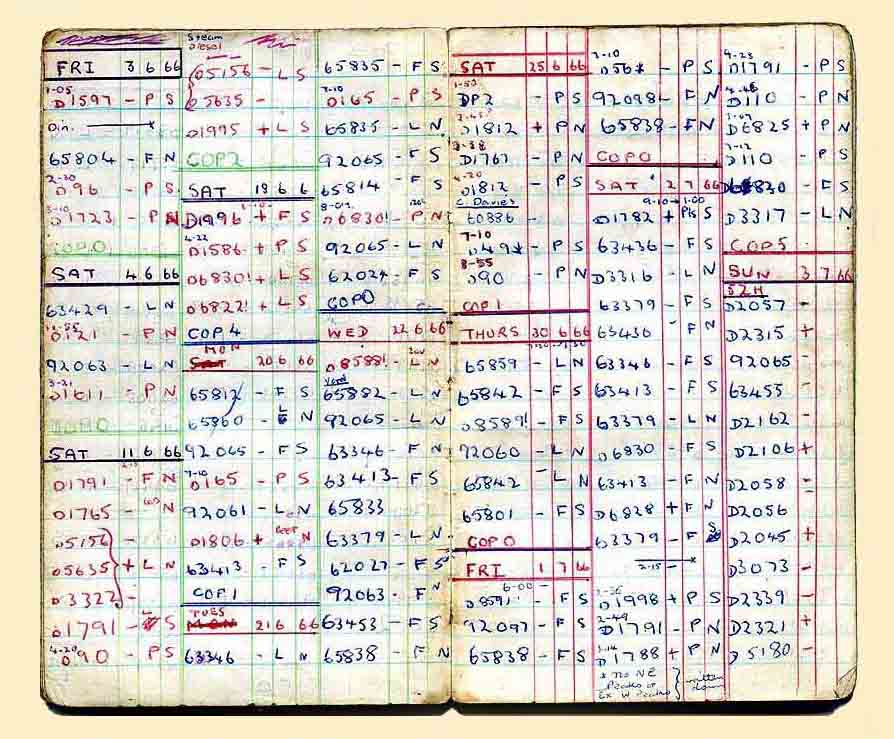 FRI 3 6 66
1-05
D1597 - P S
Din.
65804 - F N
2-30
D96 - P S
D1723 - P N
COP 0
SAT 4 6 66
63429 - L N
12-55
D121 - P N
92063 - L N
3-21
D1611 - P N
COP 0
SAT 11 6 66
D1791 - F N
D1765 - N
D5156 -
D5635 + L N
D3322 -
D1791 - S
4-20
D90 - P S
Steam
Diesel
D5156 - L S
D5635 -
D1995 + L S
COP 2
SAT 18 6 6
D1996 + F S
4-22
D1586 + P S
D6830! + L S
D6822! + L S
COP 4
MON
SAT 20 6 66
65812 - F S
65860 - L N
92065 - F S
7-10
D165 - P S
92061 - L N
D1806 + N
63413 - F S
COP 1
TUES
MON 21 6 66
63346 - L N
65835 - F S
7-10
D165 - P S
65835 - L N
92065 - F S
65814 - F S
D6830! - P N
92065 - L N
62024 - F S
COP 0
WED 22 6 66
D8588! - L N
Yard
65882 - L N
92065 - L N
63346 - F N
63413 - F S
65833
63379 - L N
62027 - F S
92063 - F N
63453 - F S
65838 - F N
SAT 25 6 66
1-50
DP2 - P S
D1812 + P N
D1767 - P N
4-20
D1812 - P S
C. Davies
60886 -
7-10
D49* - P S
8-55
D90 - P N
COP 1
THURS 30 6 66
65859 - L N
65842 - F S
D8589! - F S
92060 - L N
65842 - L N
65801 - F S
COP 0
FRI 1 7 66
6-00
D8591 - F S
92097 - F S
65838 - F S
7-10
D56* - P S
92098 - F N
65838 - F N
COP 0
SAT 2 7 66
9-10 → 1-00
D1782 + Pks S
63436 - F S
D3316 - L N
63379 - F S
63436 - F N
63346 - F S
63413 - F S
63379 - L N
D6830 - F S
63413 - F N
D6828 + F N
63379 - F S
2-15
D1998 + P S
2-49
D1791 - P N
D1788 + P N
* no NE
Peaks or
Ex W Peaks
written
down
4-23
D1791 - P S
4-46
D110 - P N
D6825 + P N
7-12
D110 - P S
D6830 - F S
D3317 - L N
COP 5
SUN 3 7 66
52H
D2057 -
D2315 +
92065 -
63455 -
D2162 -
D2106 +
D2058 -
D2056
D2045 +
D3073 -
D2339 -
D2321 +
D5180 -